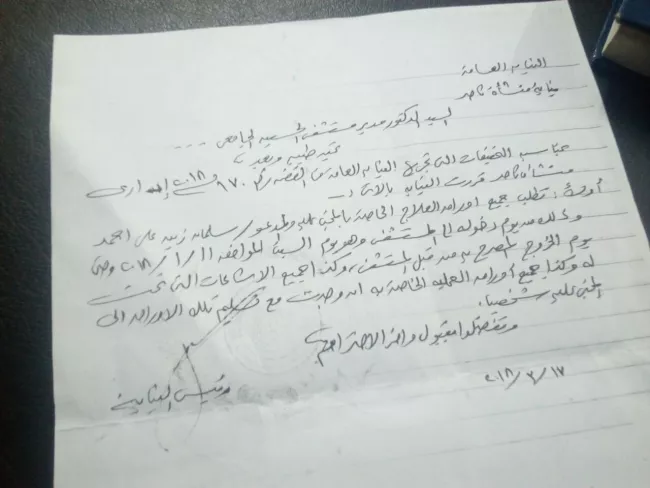 النيابه العامة
نيابة منشأة ناصر
السيد الدكتور مدير مستشفى الحسين الجامعى
تحيه طيبه وبعد
بمناسبة التحقيقات التى تجريها النيابه العامه فى القضيه رقم ٩٧٠ لسنة ٢٠١٨ إدارى
منشأة ناصر قررت النيابه بالاتى :-
أولاً : تطلب جميع اوراق العلاج الخاصة بالمجنى عليه والمدعو / سلمان زينه على احمد
وذلك من يوم دخوله الى المستشفى وهو يوم السبت الموافق ١١ / ١ / ٢٠١٨ وحتى
يوم الخروج المصرح به من قبل المستشفى وكذا جميع الاشاعات التى تمت
له وكذا جميع أوراق العمليه الخاصة به ان وجدت مع تسليم تلك الاوراق الى
المجنى عليه شخصياً
وتفضلوا بقبول وافر الاحترام
رئيس النيابة
١٧ / ٣ / ٢٠١٨